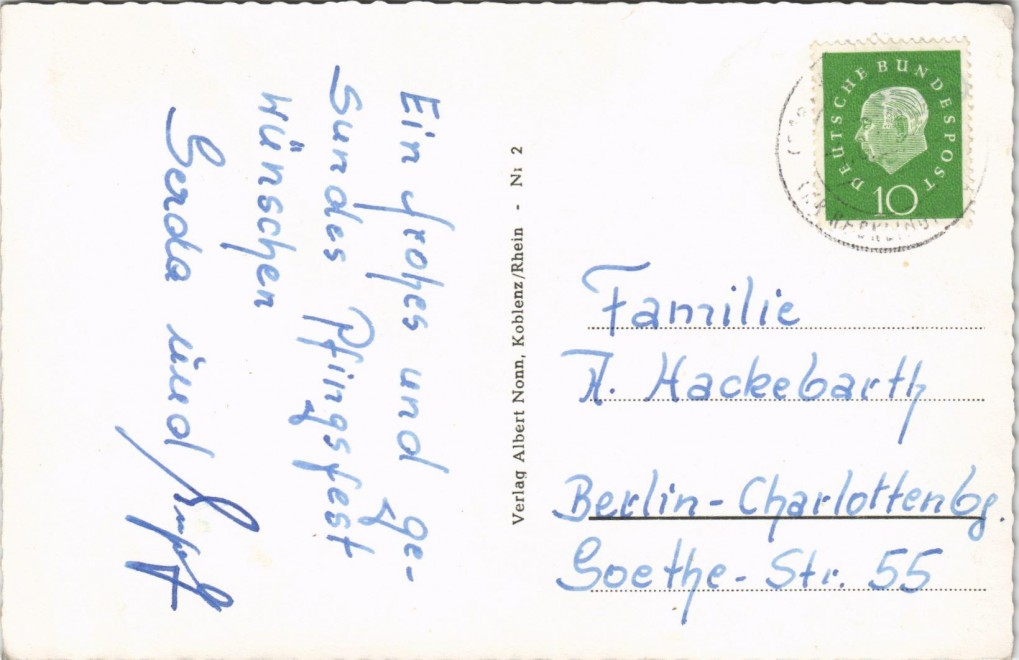 Ein frohes und ge-
sundes Pfingsfest
wünschen
Gerda und
Verlag Albert Nonn, Koblenz/Rhein - Nı 2
DEUTSCHE BUNDESPOST
10
Familie
Hackebarth
Berlin-Charlottenbg.
Goethe-Str. 55